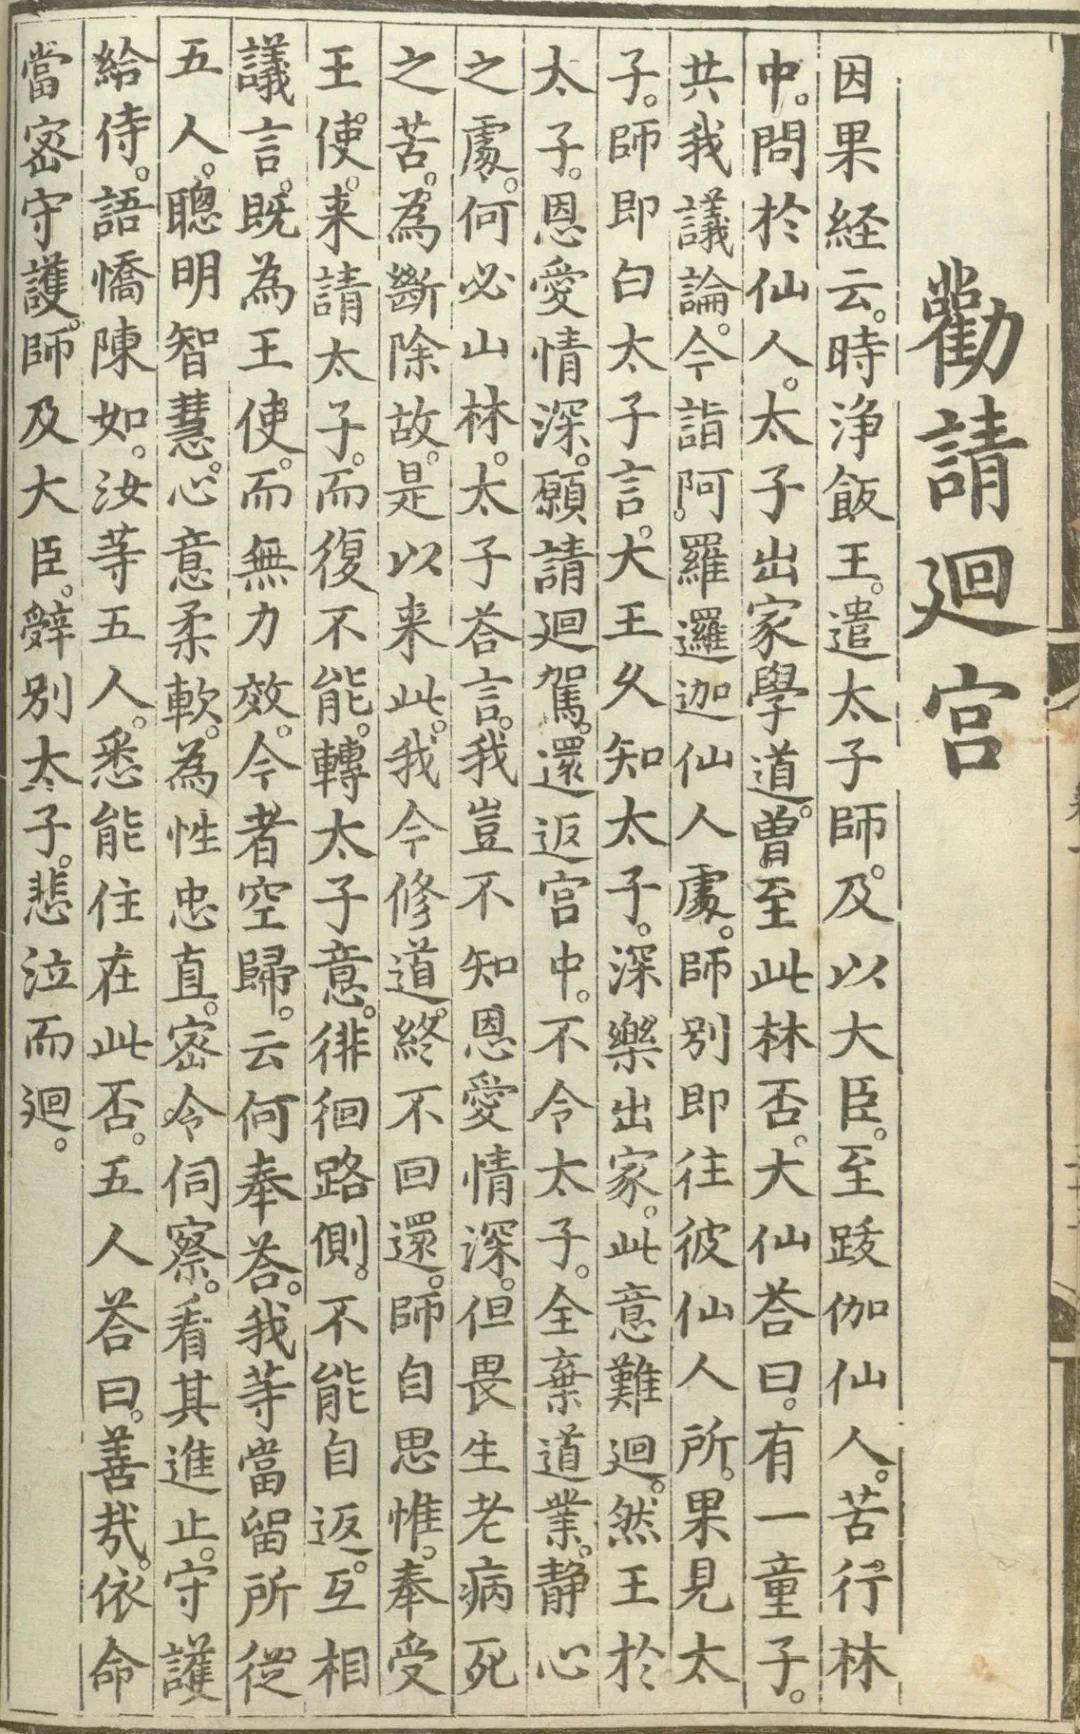 勸請廻宮
因果経云。時淨飯王。遣太子師。及以大臣。至䟦伽仙人。苦行林
中。問於仙人。太子出家學道。曽至此林否。大仙荅曰。有一童子。
共我議論。今詣阿。羅邏迦仙人處。師別即往彼仙人所。果見太
子。師即白太子言。大王久知太子。深樂出家。此意難廻。然王於
太子。恩愛情深。願請廻駕。還返宮中。不令太子。全棄道業。静心
之處。何必山林。太子荅言。我豈不知恩愛情深。但畏生老病死
之苦。為斷除故。是以来此。我今修道。終不回還。師自思惟。奉受
王使。来請太子。而復不能。轉太子意。徘徊路側。不能自返。互相
議言。既為王使。而無力效。今者空歸。云何奉荅。我等當留所従
五人。聰明智慧。心意柔軟。為性忠直。宻令伺察。看其進止。守護
給侍。語憍陳如。汝等五人。悉能住在此否。五人荅曰。善㢤。依命
當宻守護。師及大臣。辤別太子。悲泣而廻。